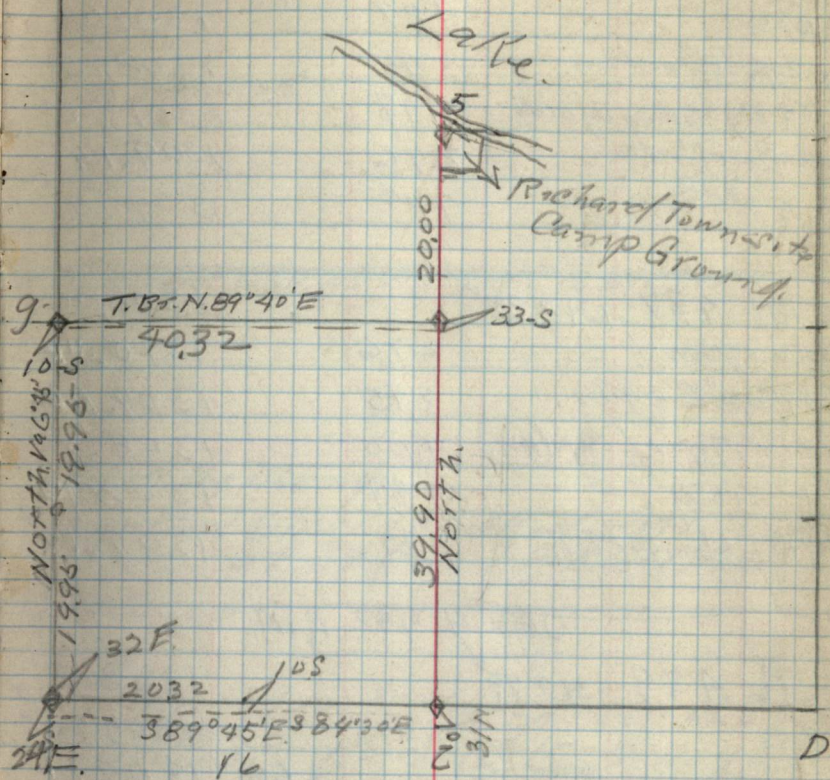 Lake.
5
Richard Town-site
Camp Ground.
20,00
9
T.Br.N.89°40'E
33-S
40,32
10-S
North.
19.95
39,90
North.
19.95
32E
10S
2032
S89°45'E S84°30'E
24E.
16
31
D